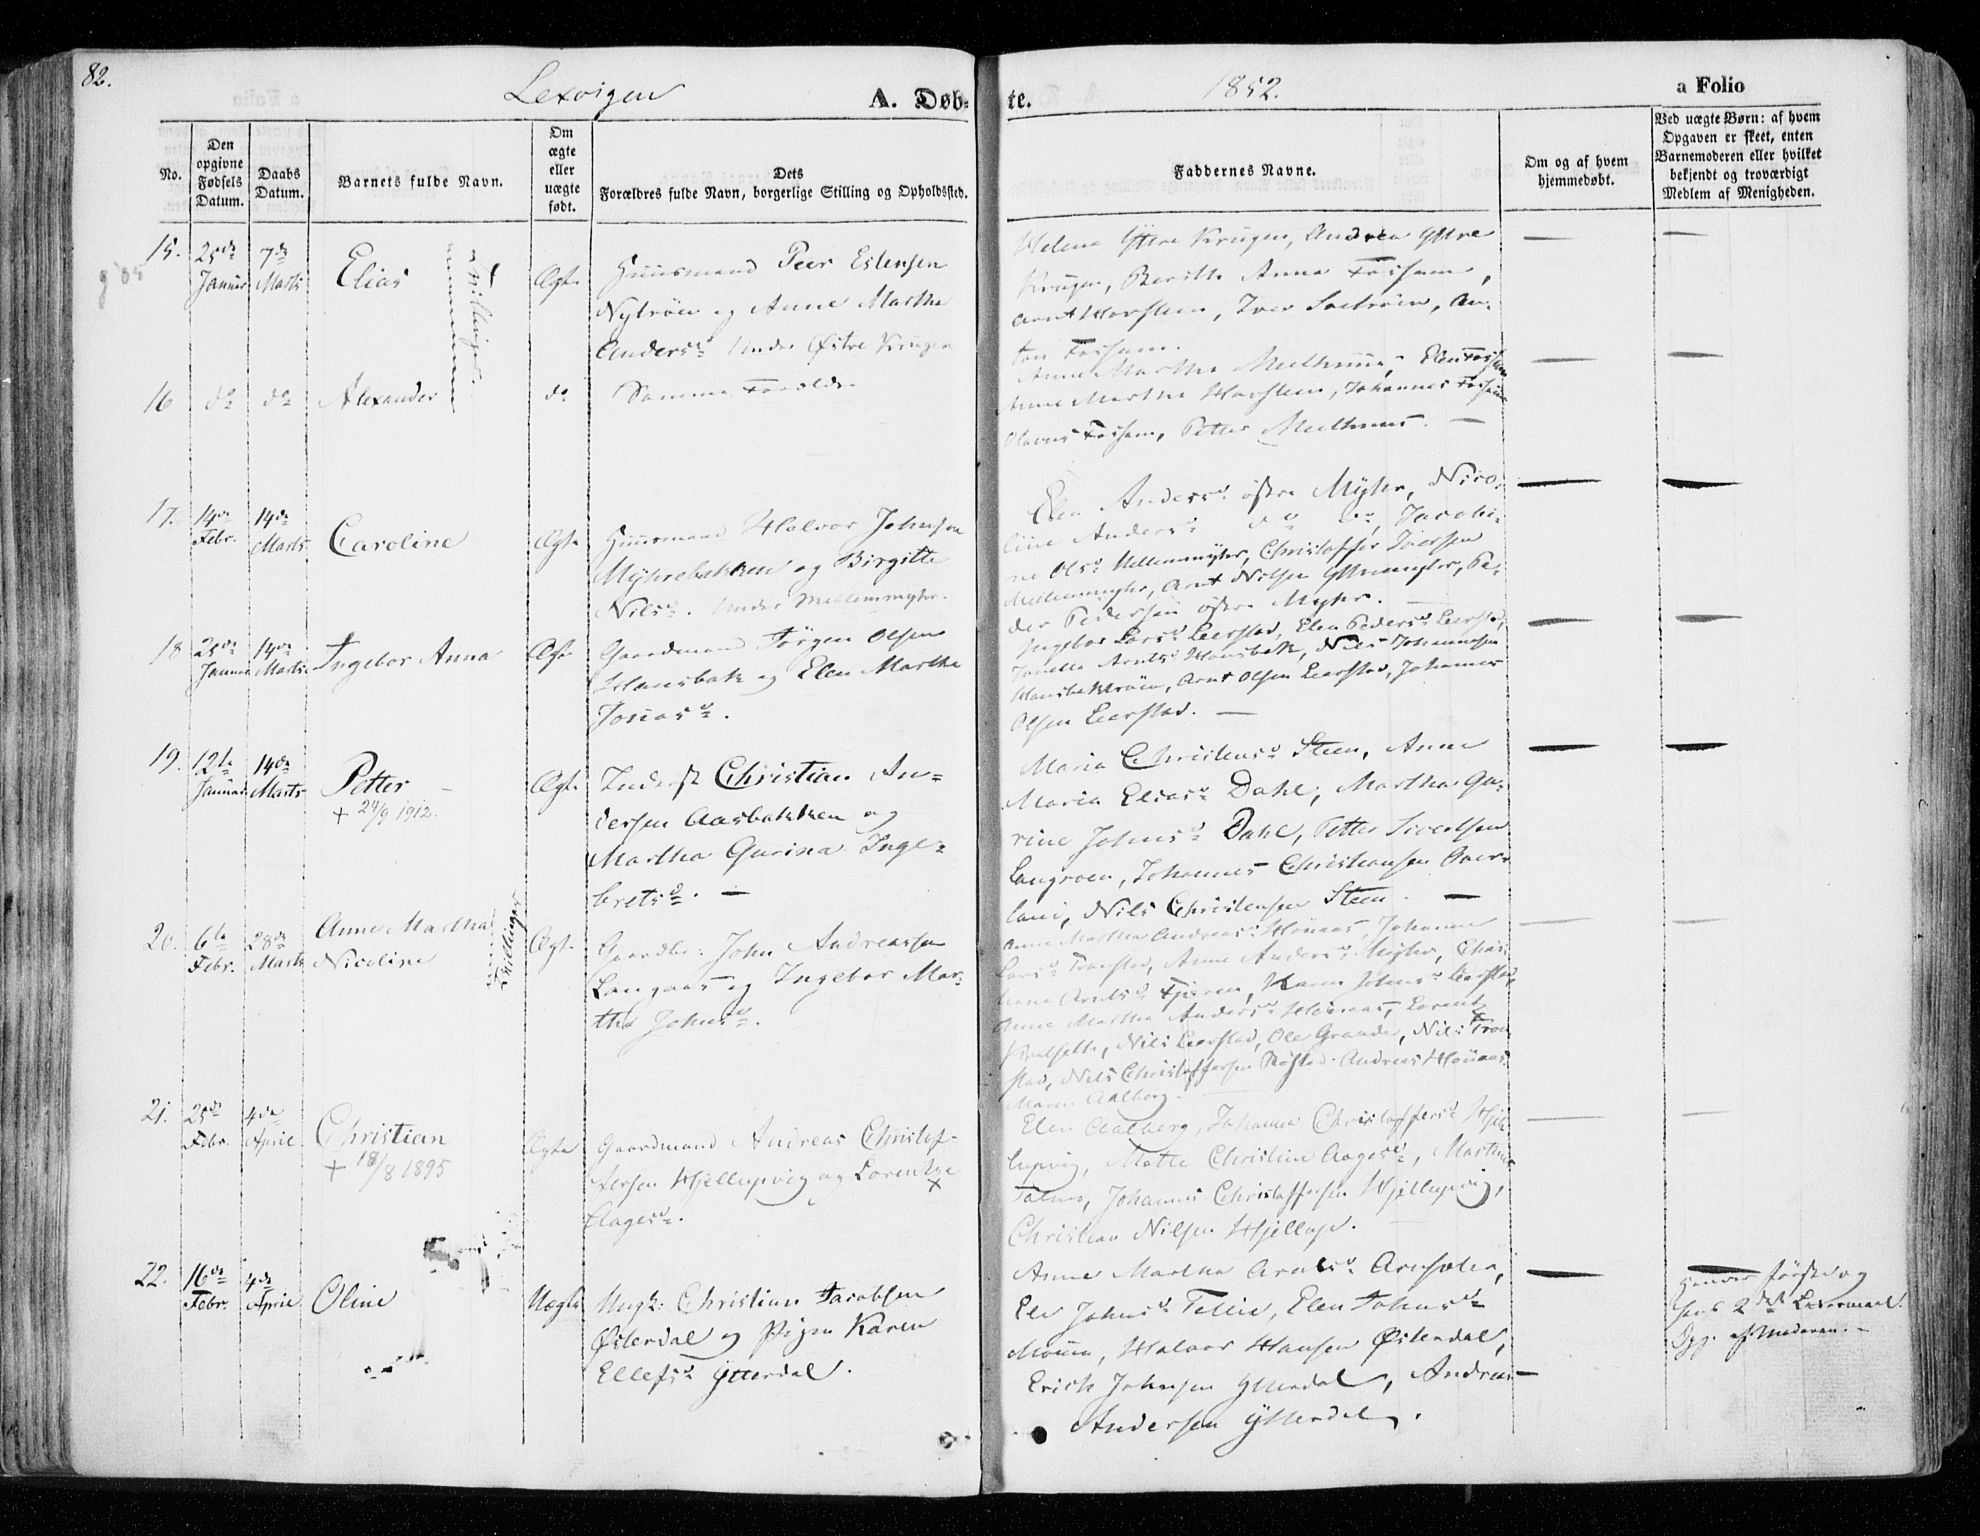 82.
Lexvigen
A. Døb-
te.
1852.
a Folio
No.
Den opgivne Fødsels Datum.
Daabs Datum.
Barnets fulde Navn.
Om ægte eller uægte født.
Dets
Forældres fulde Navn, borgerlige Stilling og Opholdssted.
Faddernes Navne.
Om og af hvem
hjemmedøbt.
Ved uægte Børn: af hvem
Opgaven er skeet, enten
Barnemoderen eller hvilket
bekjendt og troværdigt
Medlem af Menigheden.
15.
25de Januar
7de Marts
Elias
Tvillinger
Ægte
Huusmand Peer Estensen
Nytrøen og Anne Martha
Andersd. under Østre Krugen
Helena Yttre Krugen, Andrea Yttre
Krugen, Berith Anna Fossum,
Arnt Harslem, Iver
ton Fossum.
16
do
do
Alexander
do
Samme Forældre
Anne Martha
Anne Martha Johannes
Olaves Fossum, Petter
17.
14de Febr.
14de Marts
Caroline
Ægte
Huusmand Halvor Johnsen
Myhrebakken og Birgitte
Nilsd. Under Mellemmyhr.
Elen Andersd. østre Myhr, Nico-
line Andersd. do do, Jacobi-
ne Olsd. Mellemmyhr, Christoffer Iversen
Mellemmyhr, Arnt Nilsen Yttremyhr, Pe-
der Pedersen østre Myhr.
18
25de Januar
14de Marts
Ingebor Anna
Ægte
Gaardmand Jørgen Olsen
Hansbak og Elen Martha
Jonasd.
Ingebor Larsd. Leerstad, Elen Pedersd. Leerstad,
Arntsd. Hansbak, Nils Johannesen
Hansbaktrøen, Arnt Olsen Leerstad, Johannes
Olsen Leerstad.
19.
12te Januar
14de Marts
Petter
+ 24/9 1912.
Ægte
Inderst Christian An-
dersen Aasbakken og
Martha Gurina Inge-
bretsd.
Maria Christensd. Steen, Anne
Maria Eliasd. Dahl, Martha Gu-
rine Johnsd. Dahl, Petter Sivertsen
Langroen, Johannes Christiansen
Nils Christensen Steen.
20.
6te Febr.
28de Marts
Anne Martha
Nicoline
Tvillinger
Ægte
Gaardbr. John Andreassen
Langaas og Ingebor Mar-
tha Johnsd.
Anne Martha Andreasd. Johanna
Larsd. Anne Andersd. Myhr,
Arntsd. Fjæren, Karen Johnsd. Leerstad,
Anne Martha Andersd. Lorents
Nils Leerstad, Ole Grande, Nils
stad, Nils Christoffersen Røstad. Andreas
Maren Aalberg.
21.
25de Febr.
4de April
Christian
+ 18/8 1895
Ægte
Gaardmand Andreas Christof-
fersen Hjellupvig og Lorentze
Aagesd.
Elen Aalberg, Johanna Christoffersd. Hjel-
lupvig, Mette Christine Aagesd., Martinus
Johannes Christoffersen Hjellupvig,
Christian Nilsen Hjellup.
22.
16de Febr.
4de April
Oline
Uægte
Ungk. Christian Jacobsen
Østerdal og Pigen Karen
Ellefsd. Ytterdal.
Anne Martha Arntsd.
Johnsd. Elen Johnsd.
Halvor Hansen Østerdal,
Erich Johnsen Ytterdal, Andreas
Andersen Ytterdal.
Hendes første og
hans 2det Leiermaal.
Opg. af Moderen.